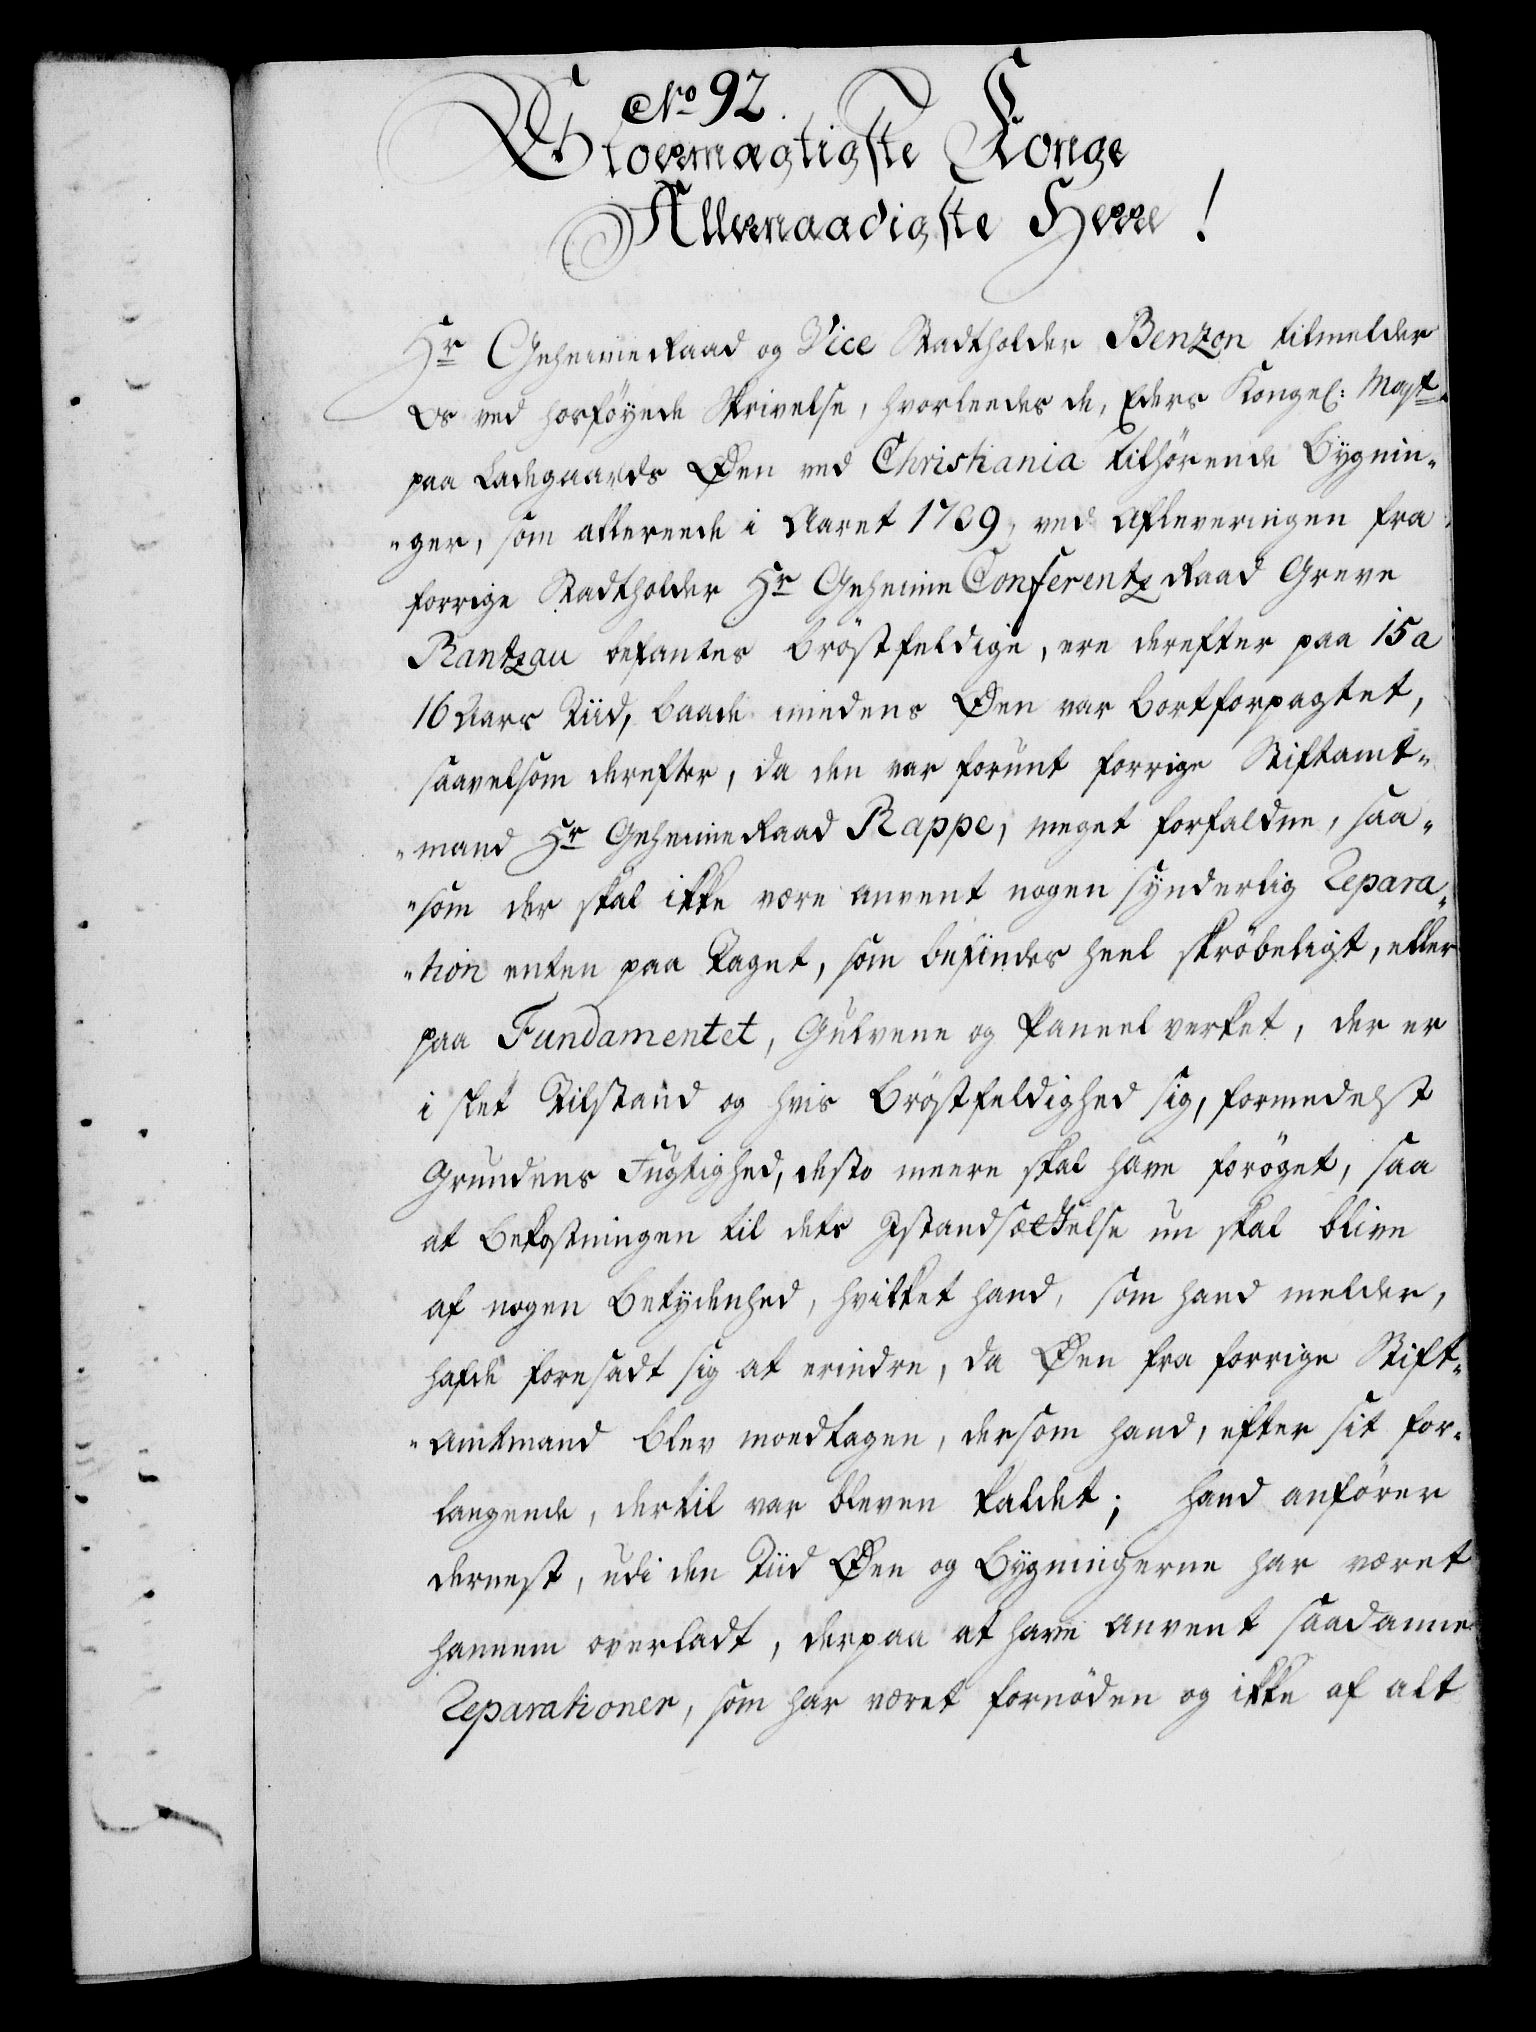 No 92.
Stormægtigste Konge
Allernaadigste Herre!
Hr GeheimeRaad og Vice Stadtholder Benzon tilmelder
Os ved hosföyede Skrivelse, hvorleedes de, Eders Kongel: Mayt
paa Ladegaards Øen ved Christiania tilhörende Bÿgnin„
„ger, som allereede i Aaret 1739, ved Afleveringen fra
forrige Stadtholder Hr Geheime ConferentzRaad Greve
Rantzau befantes bröstfeldige, ere derefter paa 15 a
16 Aars Tiid, baade imedens Øen var bortforpagtet,
saavelsom derefter, da den var forunt forrige Stiftamt„
„mand Hr GeheimeRaad Rappe, meget forfaldne, saa„
„som der skal ikke være anvent nogen sÿnderlig Repara„
„tion enten paa Taget, som befindes heel skröbeligt, eller
paa Fundamentet, Gulvene og Paneelverket, der er
i slet Tilstand og hvis Bröstfeldighed sig, formedelst
Grundens Fugtighed, desto meere skal have foröget, saa
at Bekostningen til dets Istandsættelse nu skal blive
af nogen Betÿdenhed, hvilket hand, som hand melder,
hafde foresadt sig at erindre, da Øen fra forrige Stift„
„Amtmand blev modtagen, dersom hand, efter sit for„
langende, dertil var bleven kaldet; hand anförer
dernest, udi den Tiid Øen og Bÿgningerne har været
hannem overladt, derpaa at have anvent saadanne
Reparationer, som har været fornöden og ikke af alt